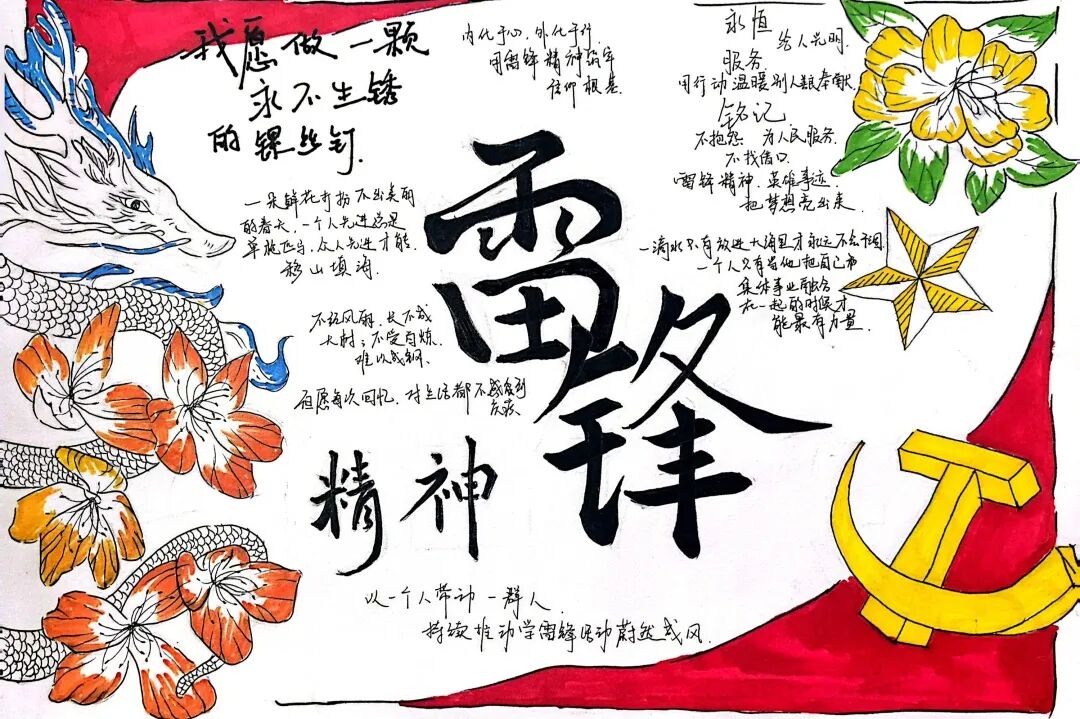 我愿做一颗
永不生锈
的螺丝钉.
内化于心,外化于行
用雷锋精神筑牢
信仰根基.
永恒 给人光明.
服务.
用行动温暖别人 奉献.
铭记
不抱怨 为人民服务.
不找借口.
雷锋精神.英雄事迹.
把梦想亮出来
一朵鲜花打扮不出美丽
的春天,一个人先进总是
单枪匹马,众人先进才能
移山填海
一滴水只有放进大海里才永远不会干涸
一个人只有当他把自己和
集体事业融合
在一起的时候才
能最有力量.
不经风雨,长不成
大树;不受百炼.
难以成钢
但愿每次回忆.对生活都不感到
负疚
雷锋
精神
以一个人带动一群人.
持续推动学雷锋活动蔚然成风.